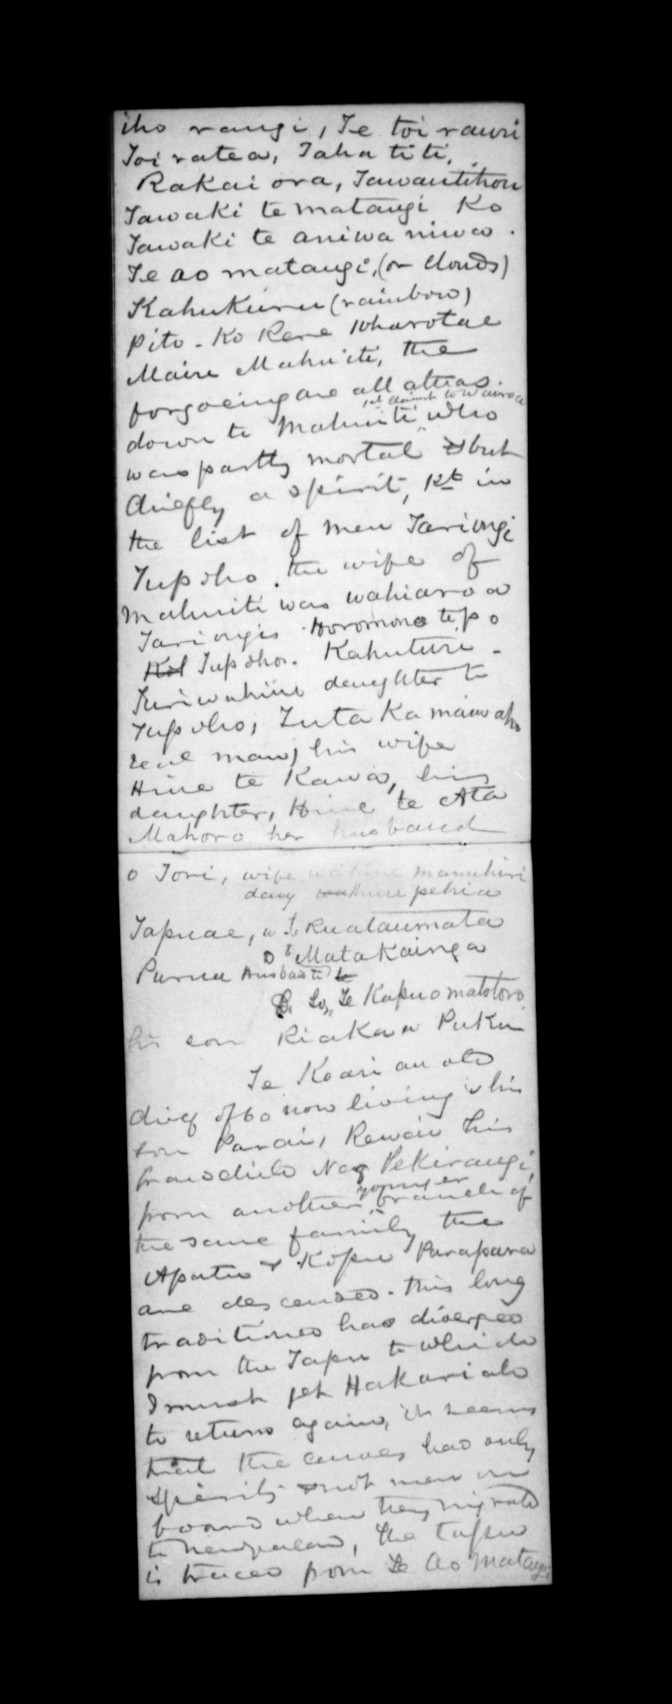 iho rangi, Te toi rauri
Toi ratea, Taha titi,
Rakai ora, Tawautihou
Tawaki te matangi Ko
Tawaki te aniwa niwa.
Te ao matangi, (or Clouds)
Kahukuru (rainbow)
pito - Ko Rere Wharotae
Maire Mahuiti, the
forgoeing are all atuas.
down to Mahuiti who
was partly mortal but
chiefly a spirit, 1st in
the list of men Tariongi
Tupoho. the wife of
Mahuiti was wahiaroa
Tariongis Horomona te po
Tupohos. Kahuturi -
Turiwahine daughter to
Tupoho, Tuta Ka
real man, his wife
Hine te Kawa, his
daughter, Hine te Ata
Mahoro her husband
o Tori, wife manuhiri
pehia
Tapuae, w to Ruataumata
D to Matakainga
Purua Husband to
So, Te Kapuomatotoro
his son Riaka w Puku
Te Koari an old
chief of 60 now living & his
son Parai, Rewai his
grandchild Nag Pekirangi,
from another younger branch of
the same family the
Apatu & Kopu Parapara
are descended. this long
traditioned has diverged
from the Tapu to which
I must get Hakariah
to return again, it seems
that the canoes had only
spirits & not men on
board when they migrated
to Newzealand, the tapu
is traced from Te Ao Matangi